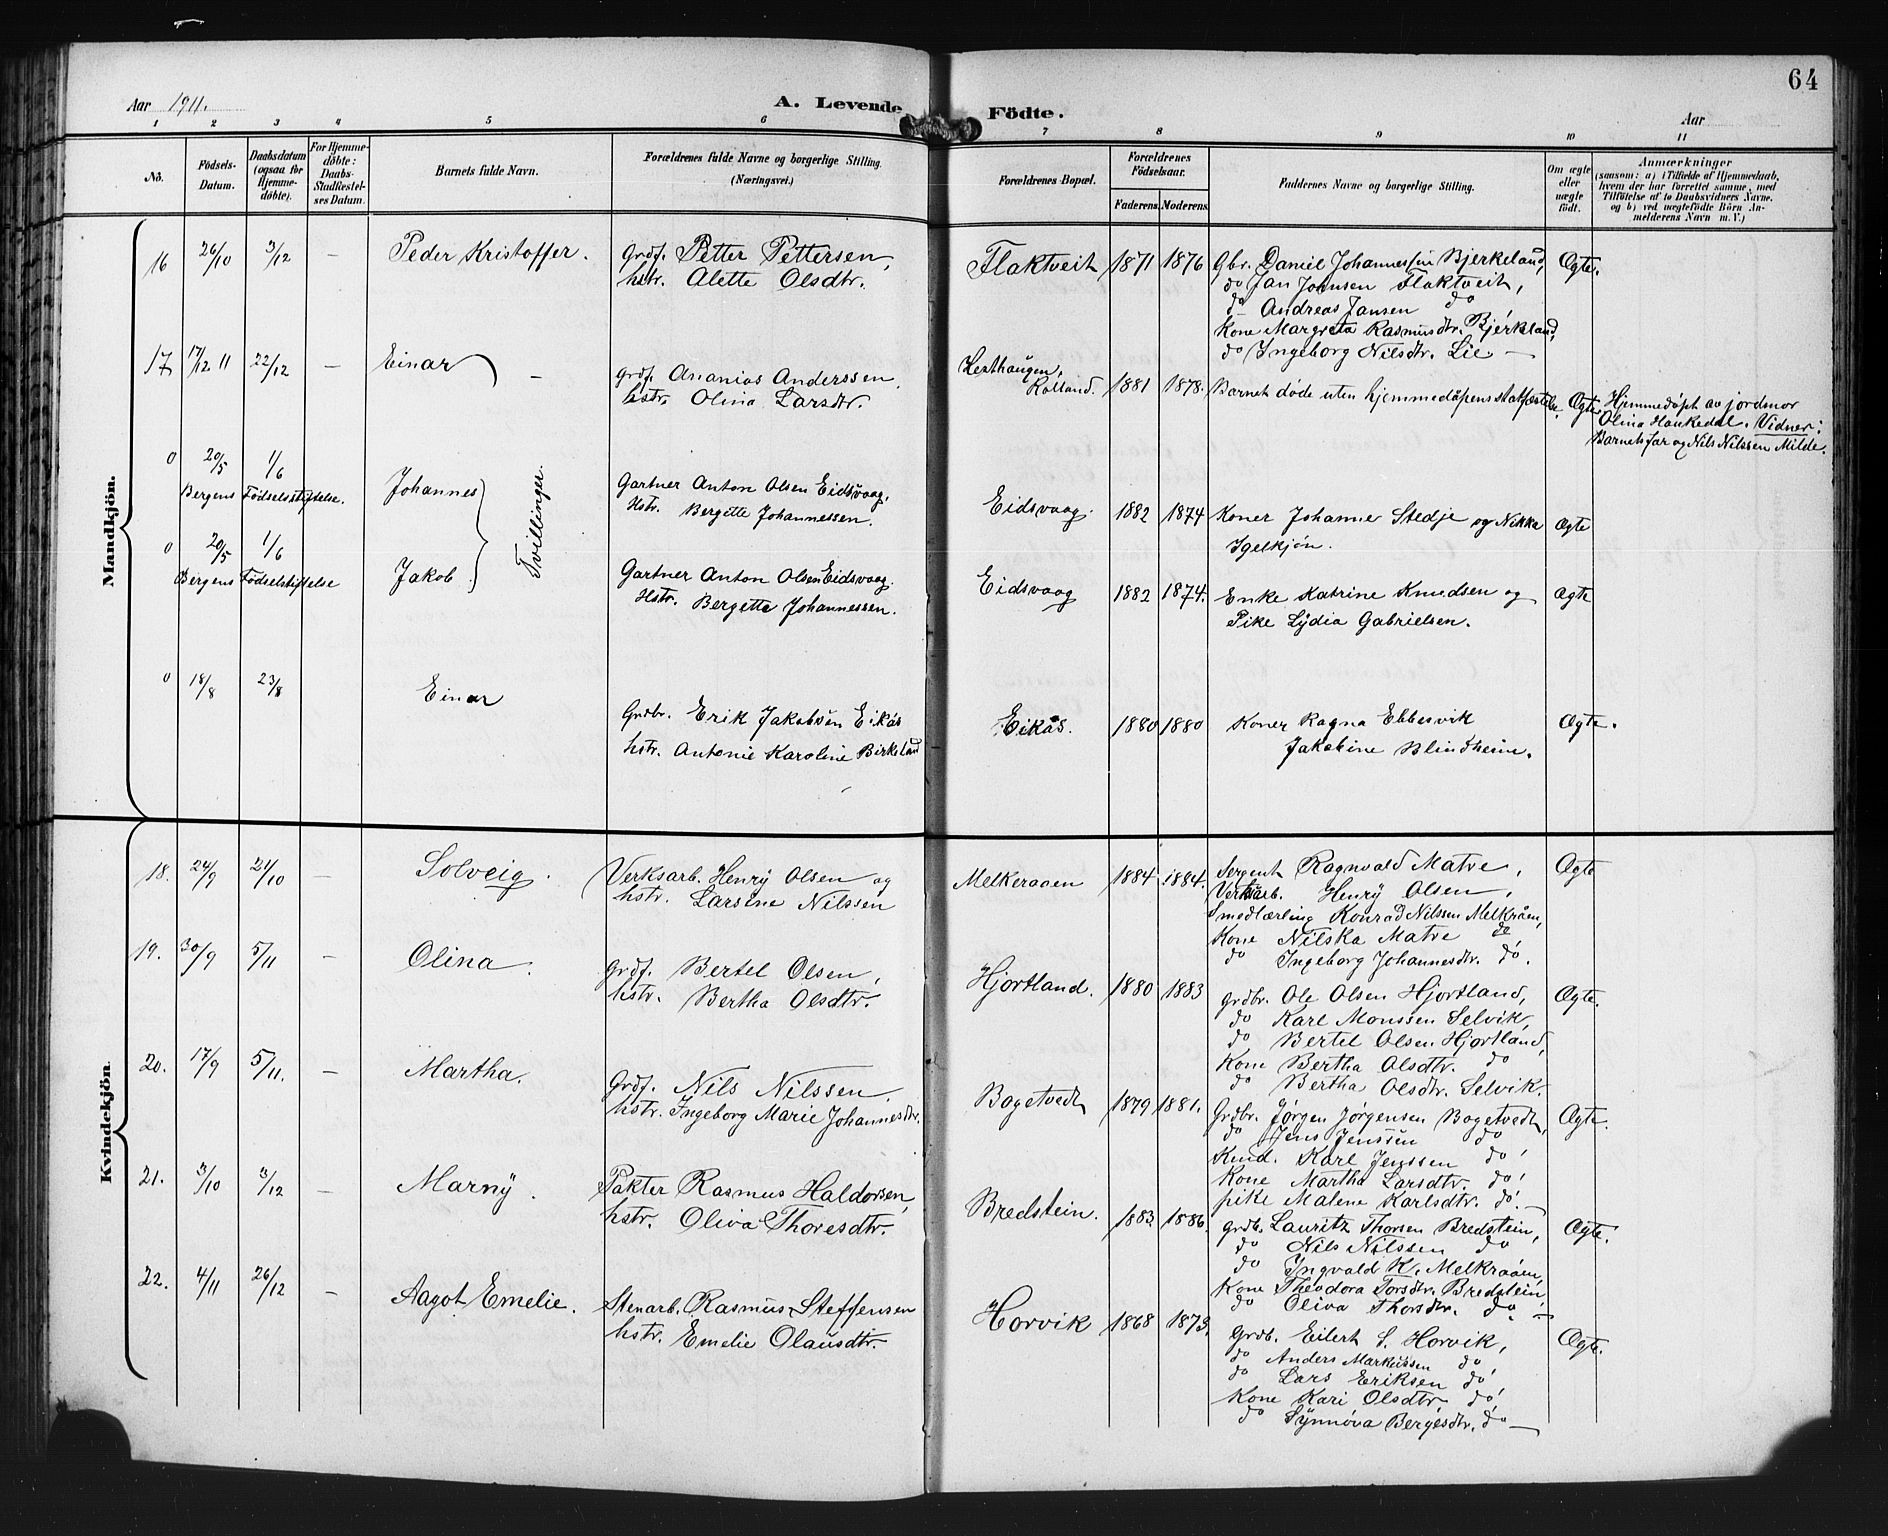 64
Aar 1911.
A. Levende Födte.
Aar
1 2 3 4 5 6 7 8 9 10 11
No.
Födsels-Datum.
Daabsdatum (ogsaa for Hjemme-döbte).
For Hjemme-döbte: Daabs-Stadfestel-ses Datum.
Barnets fulde Navn.
Forældrenes fulde Navne og borgerlige Stilling.
(Næringsvei.)
Forældrenes Bopæl.
Forældrenes Födselsaar.
Faderens. Moderens.
Faddernes Navne og borgerlige Stilling.
Om ægte eller uægte födt.
Anmærkninger
(saasom: a) i Tilfælde af Hjemmedaab,
hvem der har forrettet samme, med
Tilföielse af to Daabsvidners Navne.
og b) ved uægtefödte Börn An-
melderens Navn m. V.)
Mandkjön.
16 26/10 3/12 — Peder Kristoffer. Grdf. Petter Pettersen, Flaktveit 1871 1876 Gbr. Daniel Johannessen Bjerkeland, Ægte.
hstr. Alette Olsdtr. do Jan Johnsen Flaktveit,
do Andreas Jansen do
Kone Margreta Rasmusdtr. Bjerkland,
do Ingeborg Nilsdtr. Lie —
17 17/12 11 22/12 — Einar — grdf. Ananias Anderssen, Lesthaugen, Rolland. 1881 1878. Barnet døde uten hjemmedøpens statfæstelse. Ægte Hjemmedøpt av jordmor
hstr. Olina Larsdtr. Olina Haukedal. Vidner:
Barnets far og Nils Nilssen Milde.
0 20/5 1/6 Johannes Gartner Anton Olsen Eidsvaag, Eidsvaag. 1882 1874 Koner Johanne Stedje og Nikka Ægte
Bergens Fødselsstiftelse. Hstr. Bergitte Johannessen. Igelkjøn.
Tvillinger.
0 20/5 1/6 Jakob. Gartner Anton Olsen Eidsvaag. Eidsvaag 1882 1874. Enke Katrine Knudsen og Ægte
Bergens Fødselstiftelse Hstr. Bergitte Johannessen. Pike Lydia Gabrielsen.
0 18/8 23/8 Einar Grdbr. Erik Jakobsen Eikås Eikås. 1880 1880 Koner Ragna Ebbesvik Ægte.
hstr. Antonie Karoline Birkeland Jakobine Blindheim.
Kvindekjön.
18. 24/9 21/10 — Solveig. Verksarb. Henry Olsen og Melkeraaen 1884 1884. Sergent Ragnvald Matre, Ægte
hstr. Larsine Nilssen Verksarb. Henry Olsen,
Smedlærling Konrad Nilssen Melkråen,
Kone Nilska Matre do
do Ingeborg Johannesdtr. do.
19. 30/9 5/11 — Olina. Grdf. Bertel Olsen, Hjortland. 1880 1883 grdbr. Ole Olsen Hjortland, Ægte.
hstr. Bertha Olsdtr. do Karl Monssen Selvik,
do Bertel Olsen Hjortland,
Kone Bertha Olsdtr. do
do Bertha Olsdtr. Selvik.
20. 17/9 5/11. — Martha. Grdf. Nils Nilssen. Bogetvedt 1879 1881. Grdbr. Jørgen Jørgensen Bogetvedt, Ægte.
hstr. Ingeborg Marie Johannesdtr. do Jens Jenssen do
Kmd. Karl Jenssen do,
Kone Martha Larsdtr. do,
pike Malene Karlsdtr. do. —
21. 3/10 3/12 — Marny. Pakter Rasmus Haldorsen, Bredstein. 1883 1886. grdb. Lauritz Thorsen Bredstein, Ægte.
hstr. Oliva Thoresdtr. do Nils Nilssen do
do Ingvald K. Melkraåen,
Kone Theodora Torsdtr. Bredstein,
do Oliva Thorsdtr. do. —
22. 4/11 26/12 — Aagot Emelie. Stenarb. Rasmus Steffensen Horvik 1868 1873. Grdb. Eilert S. Horvik, Ægte.
hstr. Emelie Olausdtr. do Anders Markussen do,
do Lars Eriksen do,
Kone Kari Olsdtr. do,
do Synnøva Bergesdtr. do —